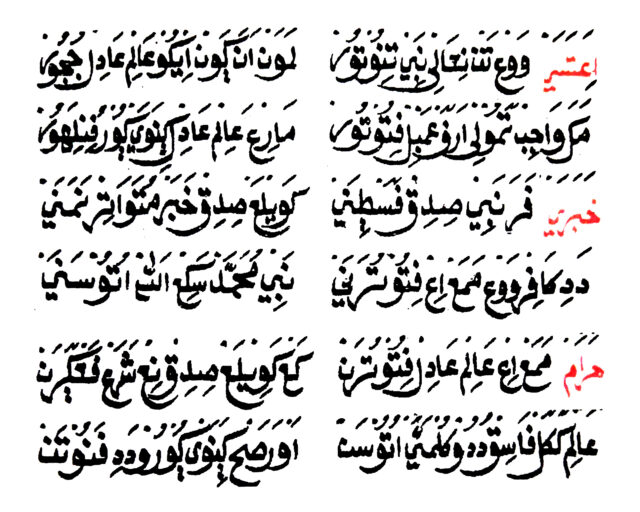 اعتسي ووع تتنعالى نبي تتوتور لمون اناكون ايكو عالم عادل ججور
مك واجب تمولى ارف عمبل فتوتور مارع عالم عادل كينوي كور فتلهور
خبري فر نبي صدق فسطني كويلع صدق خبر متواتر نمني
دد كافر ووع ممع اع فتوترني نبي محمد سكع الله اتوسني
هرام ممع اع عالم عادل فتوترن كع كويلع صدق نع شرع فعكرن
عالم ككل فاسق ددو كلمني اتوست اورصح كينوي كورو دد فنوتن